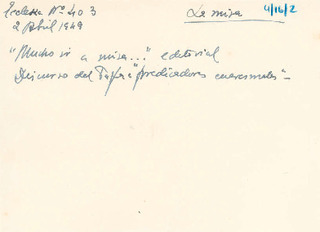 Ecclesia Nº 403
La misa
4/16/2
2 Abril 1949
"Mucho ir a misa..." editorial
Discurso del Papa a "predicadores cuaresmales"-